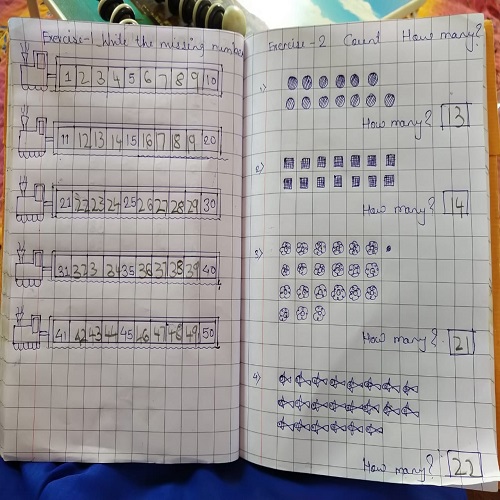 Exercise-1 Write the missing number
1 2 3 4 5 6 7 8 9 10
11 12 13 14 15 16 17 18 19 20
21 22 23 24 25 26 27 28 29 30
31 32 3 34 35 36 37 38 39 40
41 42 43 44 45 46 47 48 49 50
Exercise-2 Count How many?
1)
How many? 13
2)
How many? 14
3)
How many? 21
4)
How many? 22